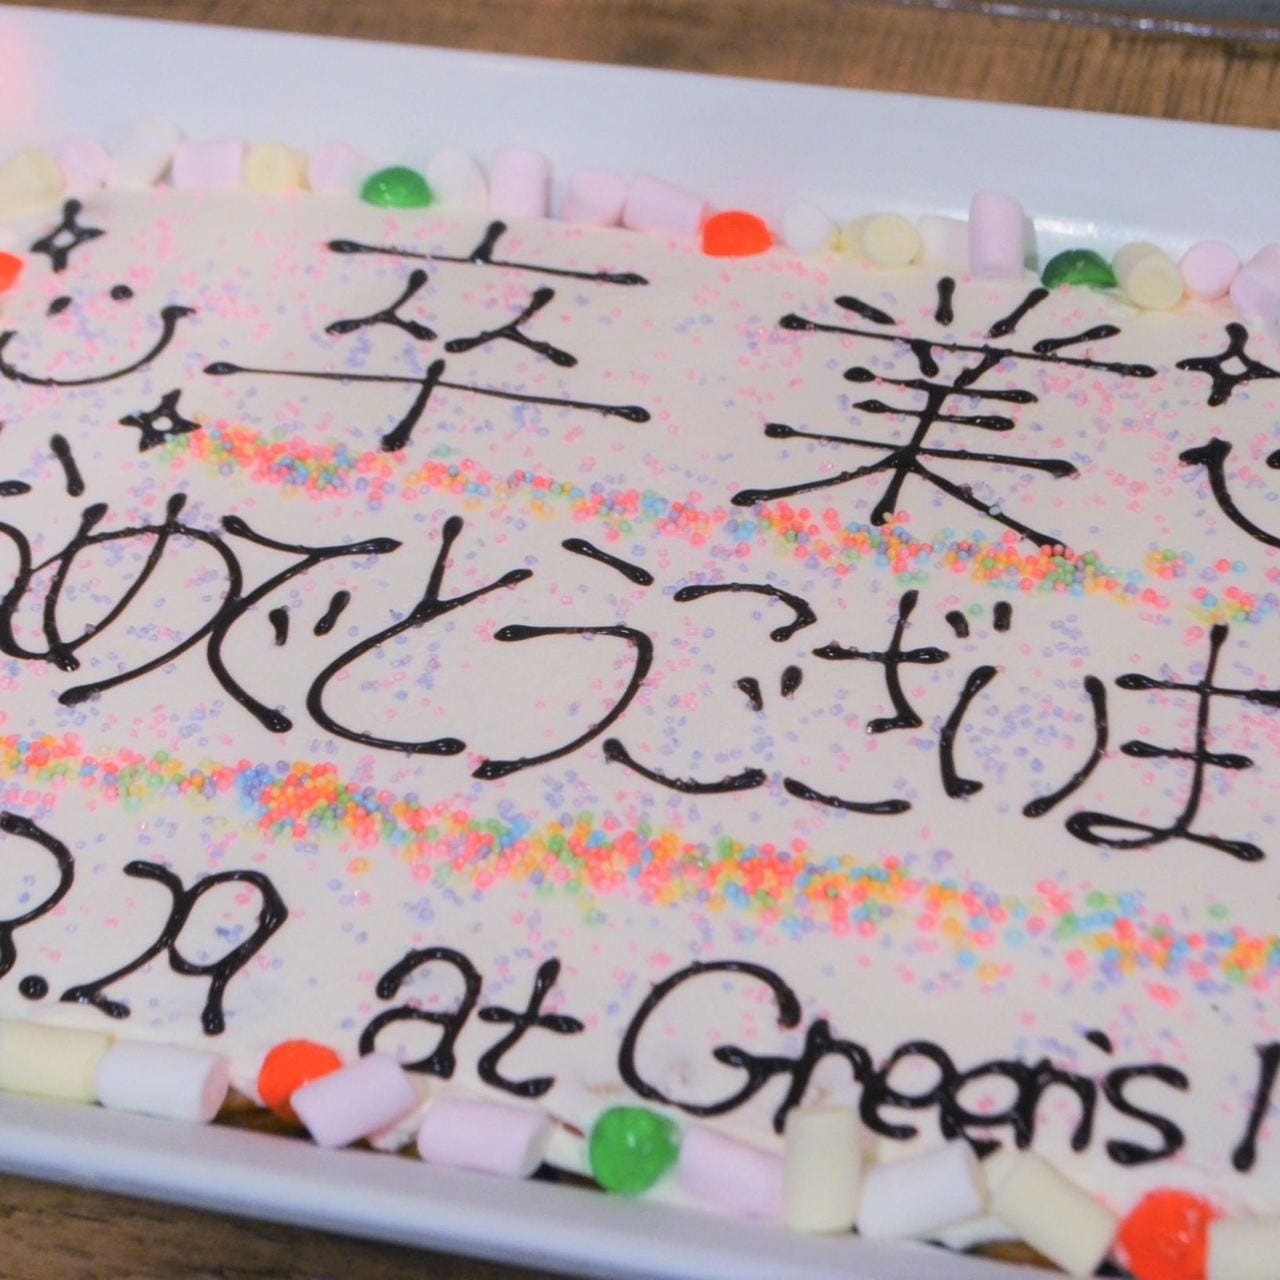 卒業
めでとうございま
3.29 at Green's